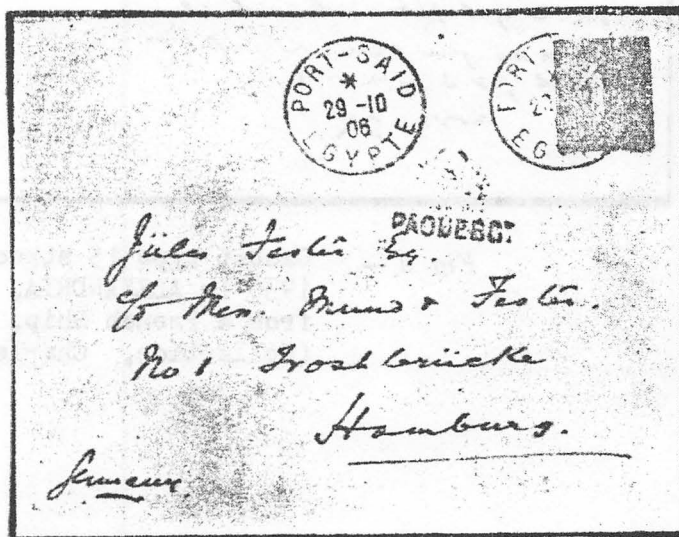 PORT-SAID
29-10
06
EGYPTE
PAQUEBOT
Jules Fester Esq.
c/o Mess. Mund & Fester.
No 1 Trostbrücke
Hamburg.
Germany